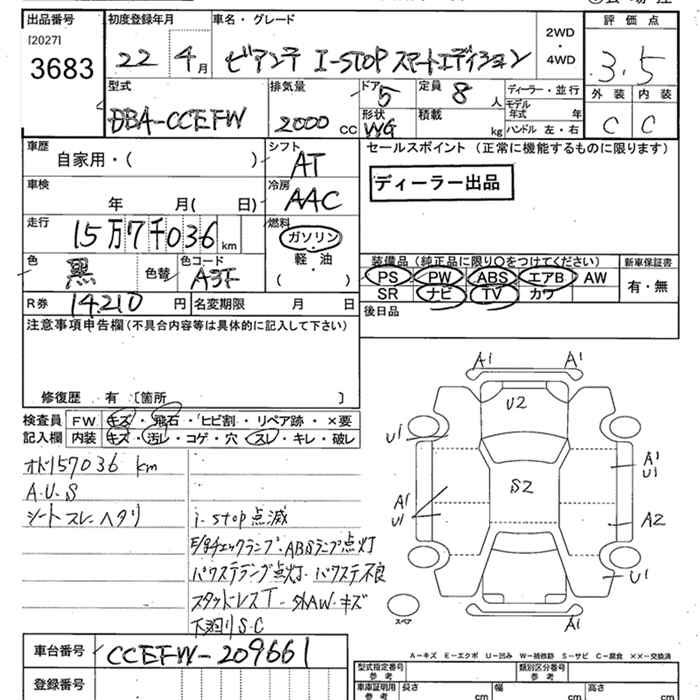 出品番号 初度登録年月 車名・グレード 評価点
[2027]
3683
22 4月 ビアンテ I-STOP スマートエディション
2WD
・
4WD
3.5
型式 排気量 ドア 定員 ディーラー・並行 外装 内装
DBA-CCEFW 2000 CC 5 8 人
モデル年式 年
形状 積載 ハンドル 左・右
WG kg
C C
車歴 シフト セールスポイント (正常に機能するものに限ります)
自家用・( ) AT
ディーラー出品
車検 冷房
年 月( 日) AAC
走行 燃料
15万7千036 km ガソリン
軽・油
( )
色 色替 色コード
黒 A3F
装備品 (純正品に限り○をつけてください) 新車保証書
PS PW ABS エアB AW 有・無
SR ナビ TV カワ
R券 14,210 円 名変期限 月 日
後日品
注意事項申告欄(不具合内容等は具体的に記入して下さい)
修復歴 有 〔箇所 〕
検査員 FW キズ・飛石・ヒビ割・リペア跡・×要
記入欄 内装 キズ・汚レ・コゲ・穴・スレ・キレ・破レ
オド157036 km
A.U.S
シートスレ.ヘタリ
i-stop点滅
E/gチェックランプ・ABSランプ点灯
パワステランプ点灯・パワステ不良
スタッドレスT-社外AW-キズ
下廻りS.C
A1 A1
U2
U1
A1
U1
S2
A1
U1
A2
U1
A1
スペア
A-キズ E-エクボ U-凹み W-補修跡 S-サビ C-腐食 ××-交換済
車台番号 CCEFW-209661
登録番号
型式指定番号 参考 類別区分番号 参考
車庫証明用 参考 長さ cm 幅 cm 高さ cm